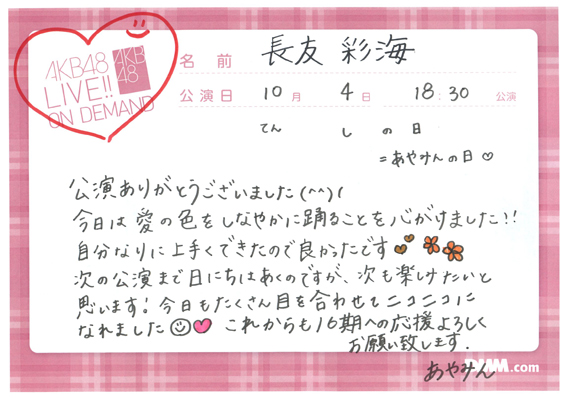 AKB48
LIVE!!
ON DEMAND
AKB
48
名前 長友 彩海
公演日 10月 4日 18:30 公演
てん し の 日
=あやみんの日♡
公演ありがとうございました(^^)(
今日は愛の色をしなやかに踊ることを心がけました!!
自分なりに上手くできたので良かったです
次の公演まで日にちはあくのですが、次も楽しけたいと
思います! 今日もたくさん目を合わせてニコニコに
なれました これからも16期への応援よろしく
お願い致します.
あやみん
DMM.com